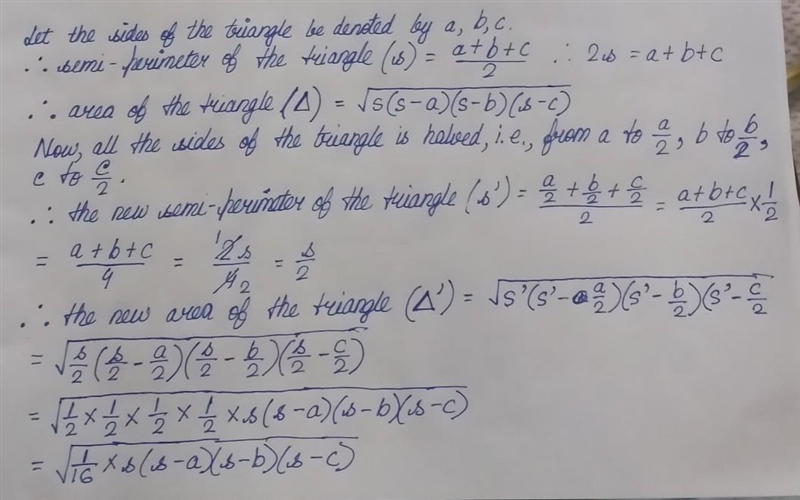 Let the sides of the triangle be denoted by a, b, c.
∴ semi-perimeter of the triangle (s) = (a+b+c)/2 ∴ 2s = a+b+c
∴ area of the triangle (Δ) = √(s(s-a)(s-b)(s-c))
Now, all the sides of the triangle is halved, i.e., from a to a/2, b to b/2,
c to c/2.
∴ the new semi-perimeter of the triangle (s') = (a/2 + b/2 + c/2)/2 = (a+b+c)/2 × 1/2
= (a+b+c)/4 = 2s/4 = s/2
∴ the new area of the triangle (Δ') = √(s'(s' - a/2)(s' - b/2)(s' - c/2
= √(s/2 (s/2 - a/2)(s/2 - b/2)(s/2 - c/2))
= √(1/2 × 1/2 × 1/2 × 1/2 × s(s-a)(s-b)(s-c))
= √(1/16 × s(s-a)(s-b)(s-c))